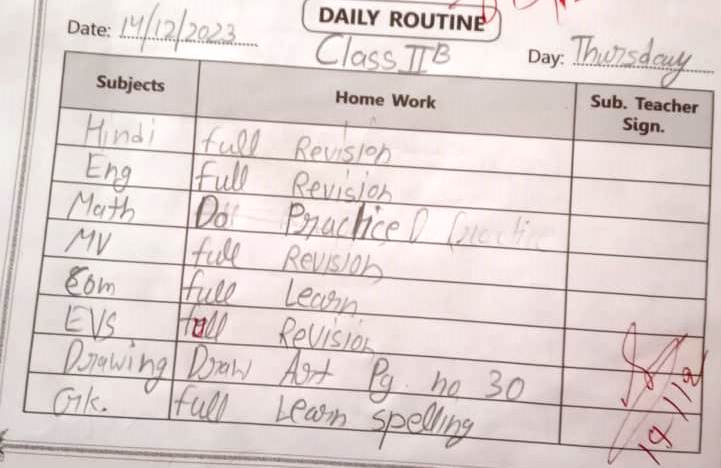 DAILY ROUTINE
Date: 14/12/2023
Class II B
Day: Thursday
Subjects Home Work Sub. Teacher Sign.
Hindi full Revision
Eng Full Revision
Math Do Practice
MV full Revision
Com full Learn
EVS full Revision
Drawing Draw Art Pg. no 30
Gk. full Learn spelling
14/12